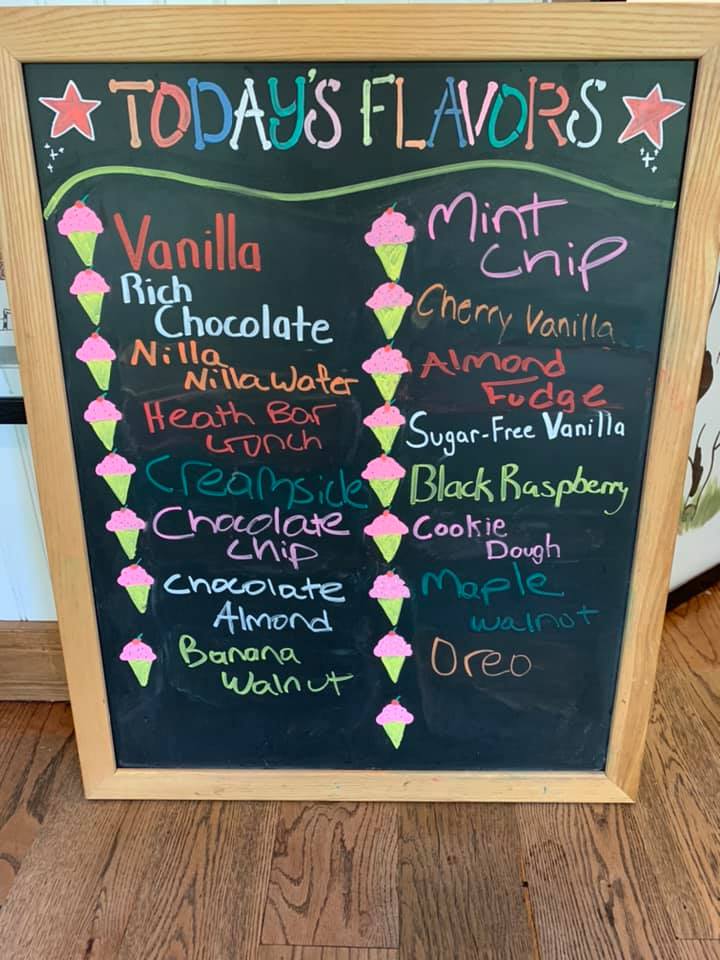 TODAY'S FLAVORS
Vanilla
Rich
Chocolate
Nilla
Nilla Wafer
Heath Bar
Crunch
Creamsicle
Chocolate
Chip
Chocolate
Almond
Banana
Walnut
Mint
Chip
Cherry Vanilla
Almond
Fudge
Sugar-Free Vanilla
Black Raspberry
Cookie
Dough
Maple
Walnut
Oreo